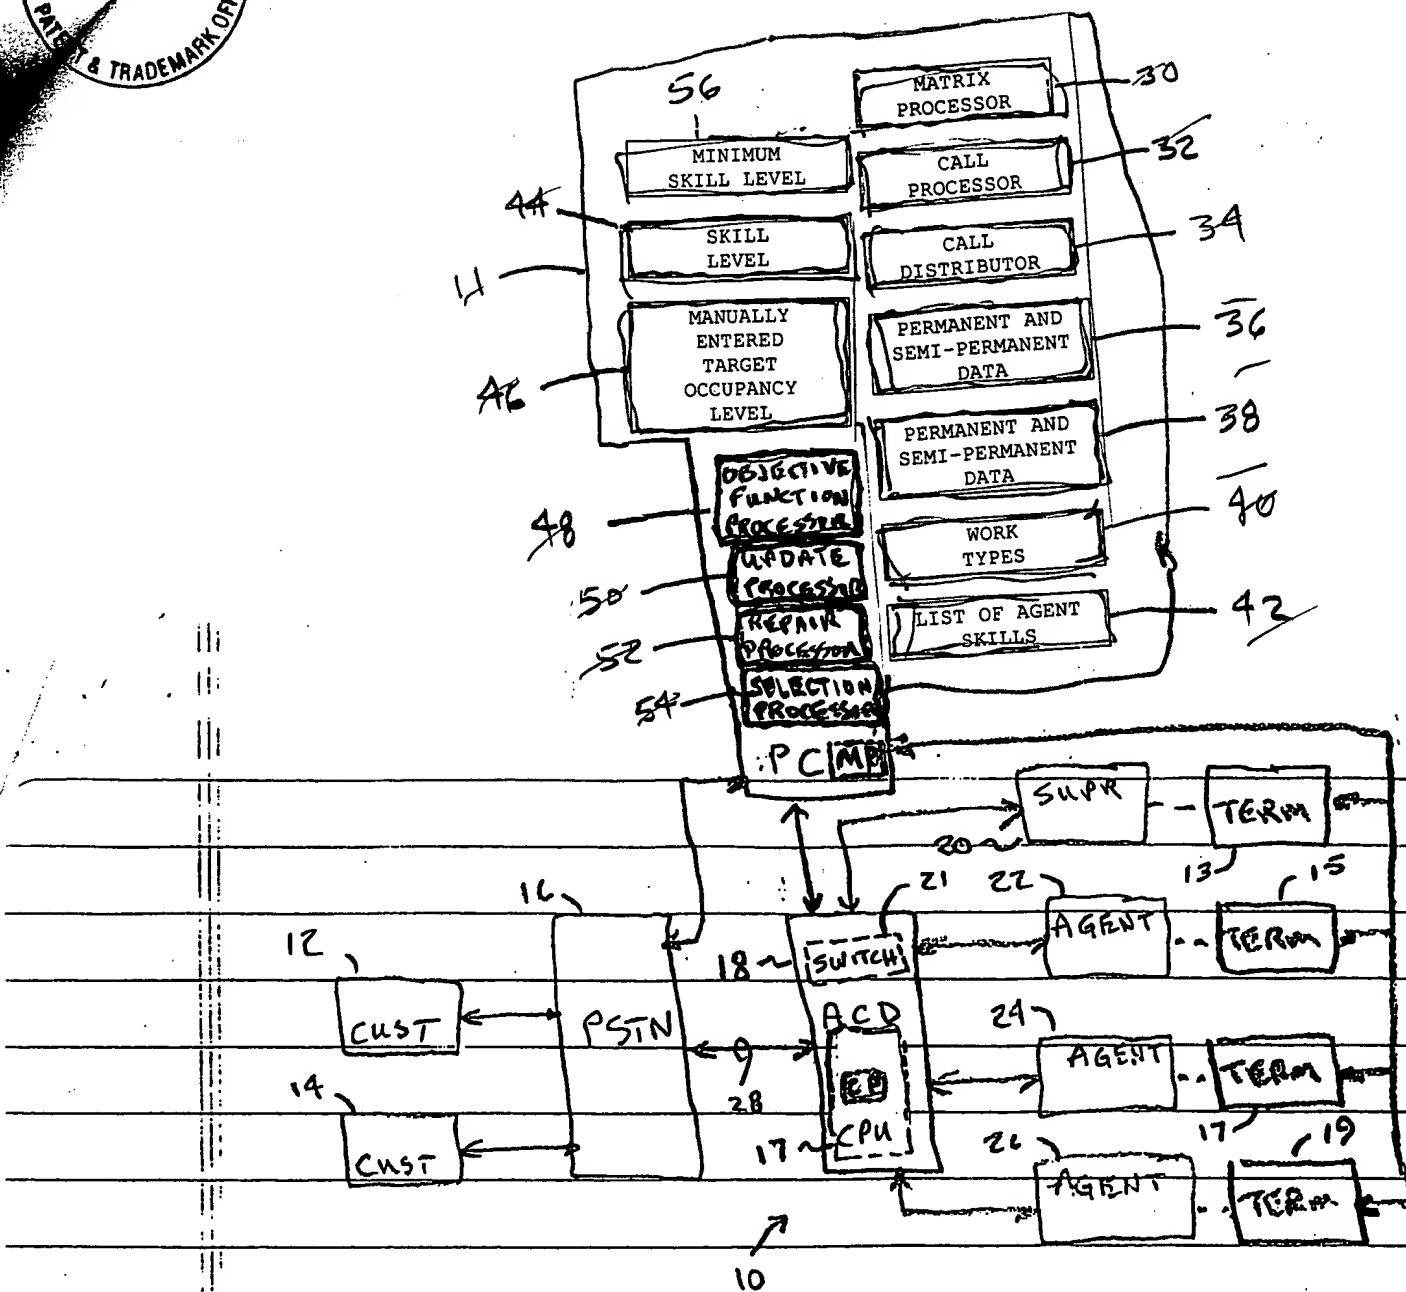 PATENT & TRADEMARK OFF
56
MATRIX
PROCESSOR
30
MINIMUM
SKILL LEVEL
CALL
PROCESSOR
32
44
SKILL
LEVEL
CALL
DISTRIBUTOR
34
11
MANUALLY
ENTERED
TARGET
OCCUPANCY
LEVEL
46
PERMANENT AND
SEMI-PERMANENT
DATA
36
PERMANENT AND
SEMI-PERMANENT
DATA
38
OBJECTIVE
FUNCTION
PROCESSOR
48
WORK
TYPES
40
UPDATE
PROCESSOR
50
LIST OF AGENT
SKILLS
42
REPAIR
PROCESSOR
52
SELECTION
PROCESSOR
54
PC MP
SUPR
TERM
20
13
16
21
22
15
12
18
SWITCH
AGENT
TERM
CUST
PSTN
ACD
24
AGENT
TERM
28
CP
14
17
CPU
26
17
19
CUST
AGENT
TERM
10